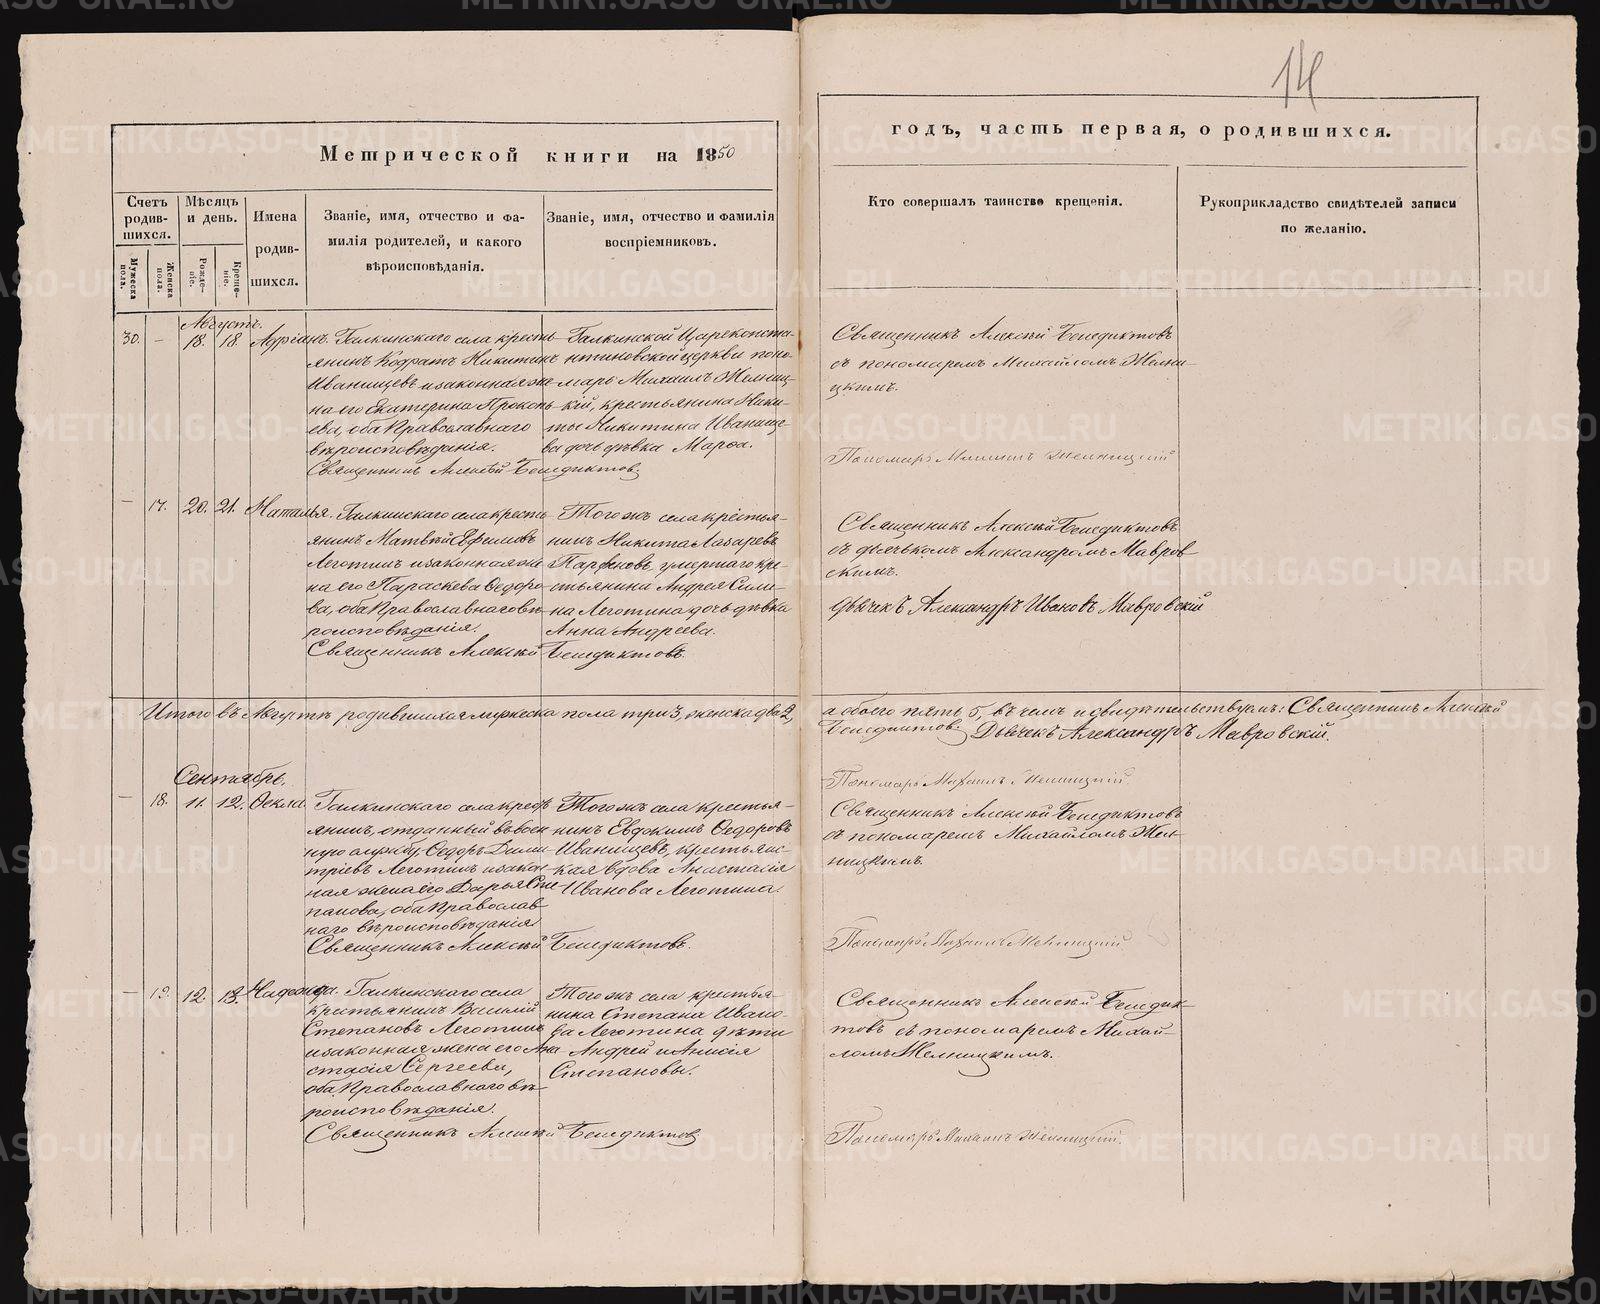 14
Метрической книги на 1850
годъ, часть первая, о родившихся.
Счетъ родив-шихся.
Мужеска пола.
Женска пола.
Мѣсяцъ и день.
Рожде-нiе.
Креще-нiе.
Имена
родив-
шихся.
Званiе, имя, отчество и фа-
милiя родителей, и какого
вѣроисповѣданiя.
Званiе, имя, отчество и фамилiя
воспрiемниковъ.
Кто совершалъ таинство крещенiя.
Рукоприкладство свидѣтелей записи
по желанiю.
Августъ.
30. – 18. 18. Адрiанъ.
Галкинскаго села кресть-
янинъ Кодратъ Никитинъ
Иванищевъ и законная же-
на его Екатерина Прокопь-
ева, оба Православнаго
вѣроисповѣданiя.
Священникъ Алексѣй Бенедиктовъ
Галкинской Цареконста-
нтиновской церкви поно-
марь Михаилъ Желниц-
кiй, крестьянина Ники-
ты Никитина Иванище-
ва дочь дѣвка Марѳа.
Священникъ Алексѣй Бенедиктовъ
съ пономаремъ Михайломъ Желни-
цкимъ.
Пономарь Михаилъ Желницкiй
– 17. 20. 21. Наталья.
Галкинскаго села кресть-
янинъ Матвѣй Ефимовъ
Леготинъ и законная же-
на его Параскева Ѳедоро-
ва, оба Православнаго вѣ-
роисповѣданiя.
Священникъ Алексѣй Бенедиктовъ.
Того жъ села крестья-
нинъ Никита Лазаревъ
умершаго кре-
стьянина Андрея
на Леготина дочь дѣвка
Анна Андреева.
Священникъ Алексѣй Бенедиктовъ
съ дьячькомъ Александромъ Мавров-
скимъ.
Дьячекъ Александръ Ивановъ Мавровскiй
Итого въ Августѣ родившихся мужеска пола три 3, женска два 2,
а обоего пять 5, въ чемъ и свидѣтельствуемъ: Священникъ Алексѣй
Бенедиктовъ. Дьячекъ Александръ Мавровскiй.
Пономарь Михаилъ Желницкiй.
Сентябрь.
– 18. 11. 12. Ѳекла.
Галкинскаго села кресть-
янинъ, отданный въ воен-
ную службу, Ѳедоръ Дими-
трiевъ Леготинъ и закон-
ная жена его Дарья Сте-
панова, оба Православ-
наго вѣроисповѣданiя
Священникъ Алексѣй Бенедиктовъ.
Того жъ села крестья-
нинъ Евфимъ Ѳедоровъ
Иванищевъ, крестьянс-
кая вдова Анастасiя
Иванова Леготина.
Священникъ Алексѣй Бенедиктовъ
съ пономаремъ Михайломъ Жел-
ницкимъ.
Пономарь Михаилъ Желницкiй
– 19. 12. 13.
Галкинскаго села
крестьянинъ Василiй
Степановъ Леготинъ
и законная жена его Ана-
стасiя Сергеева,
оба Православнаго вѣ-
роисповѣданiя.
Священникъ Алексѣй Бенедиктовъ
Того жъ села крестья-
нина Степана Ивано-
ва Леготина дѣти
Андрей и Анисiя
Степановы.
Священникъ Алексѣй Бенедик-
товъ съ пономаремъ Михай-
ломъ Желницкимъ.
Пономарь Михаилъ Желницкiй.
METRIKI.GASO-URAL.RU